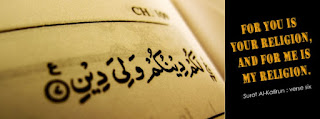 CH
لَكُمْ دِيْنُكُمْ وَلِيَ دِيْنِ
FOR YOU IS
YOUR RELIGION,
AND FOR ME IS
MY RELIGION.
Surat Al-Kafirun : verse six